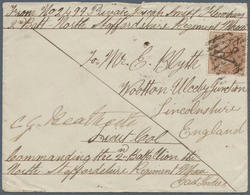 From No 2499 Private Joseph
2 Batt North Staffordshire Regiment Mhow
To Mr C. Blyth
Wootton Ulceby Junction
Lincolnshire
England
C. G. Heathcote
Lieut Col
Commanding the 2n Battalion the
North Staffordshire Regiment Mhow
East Indies